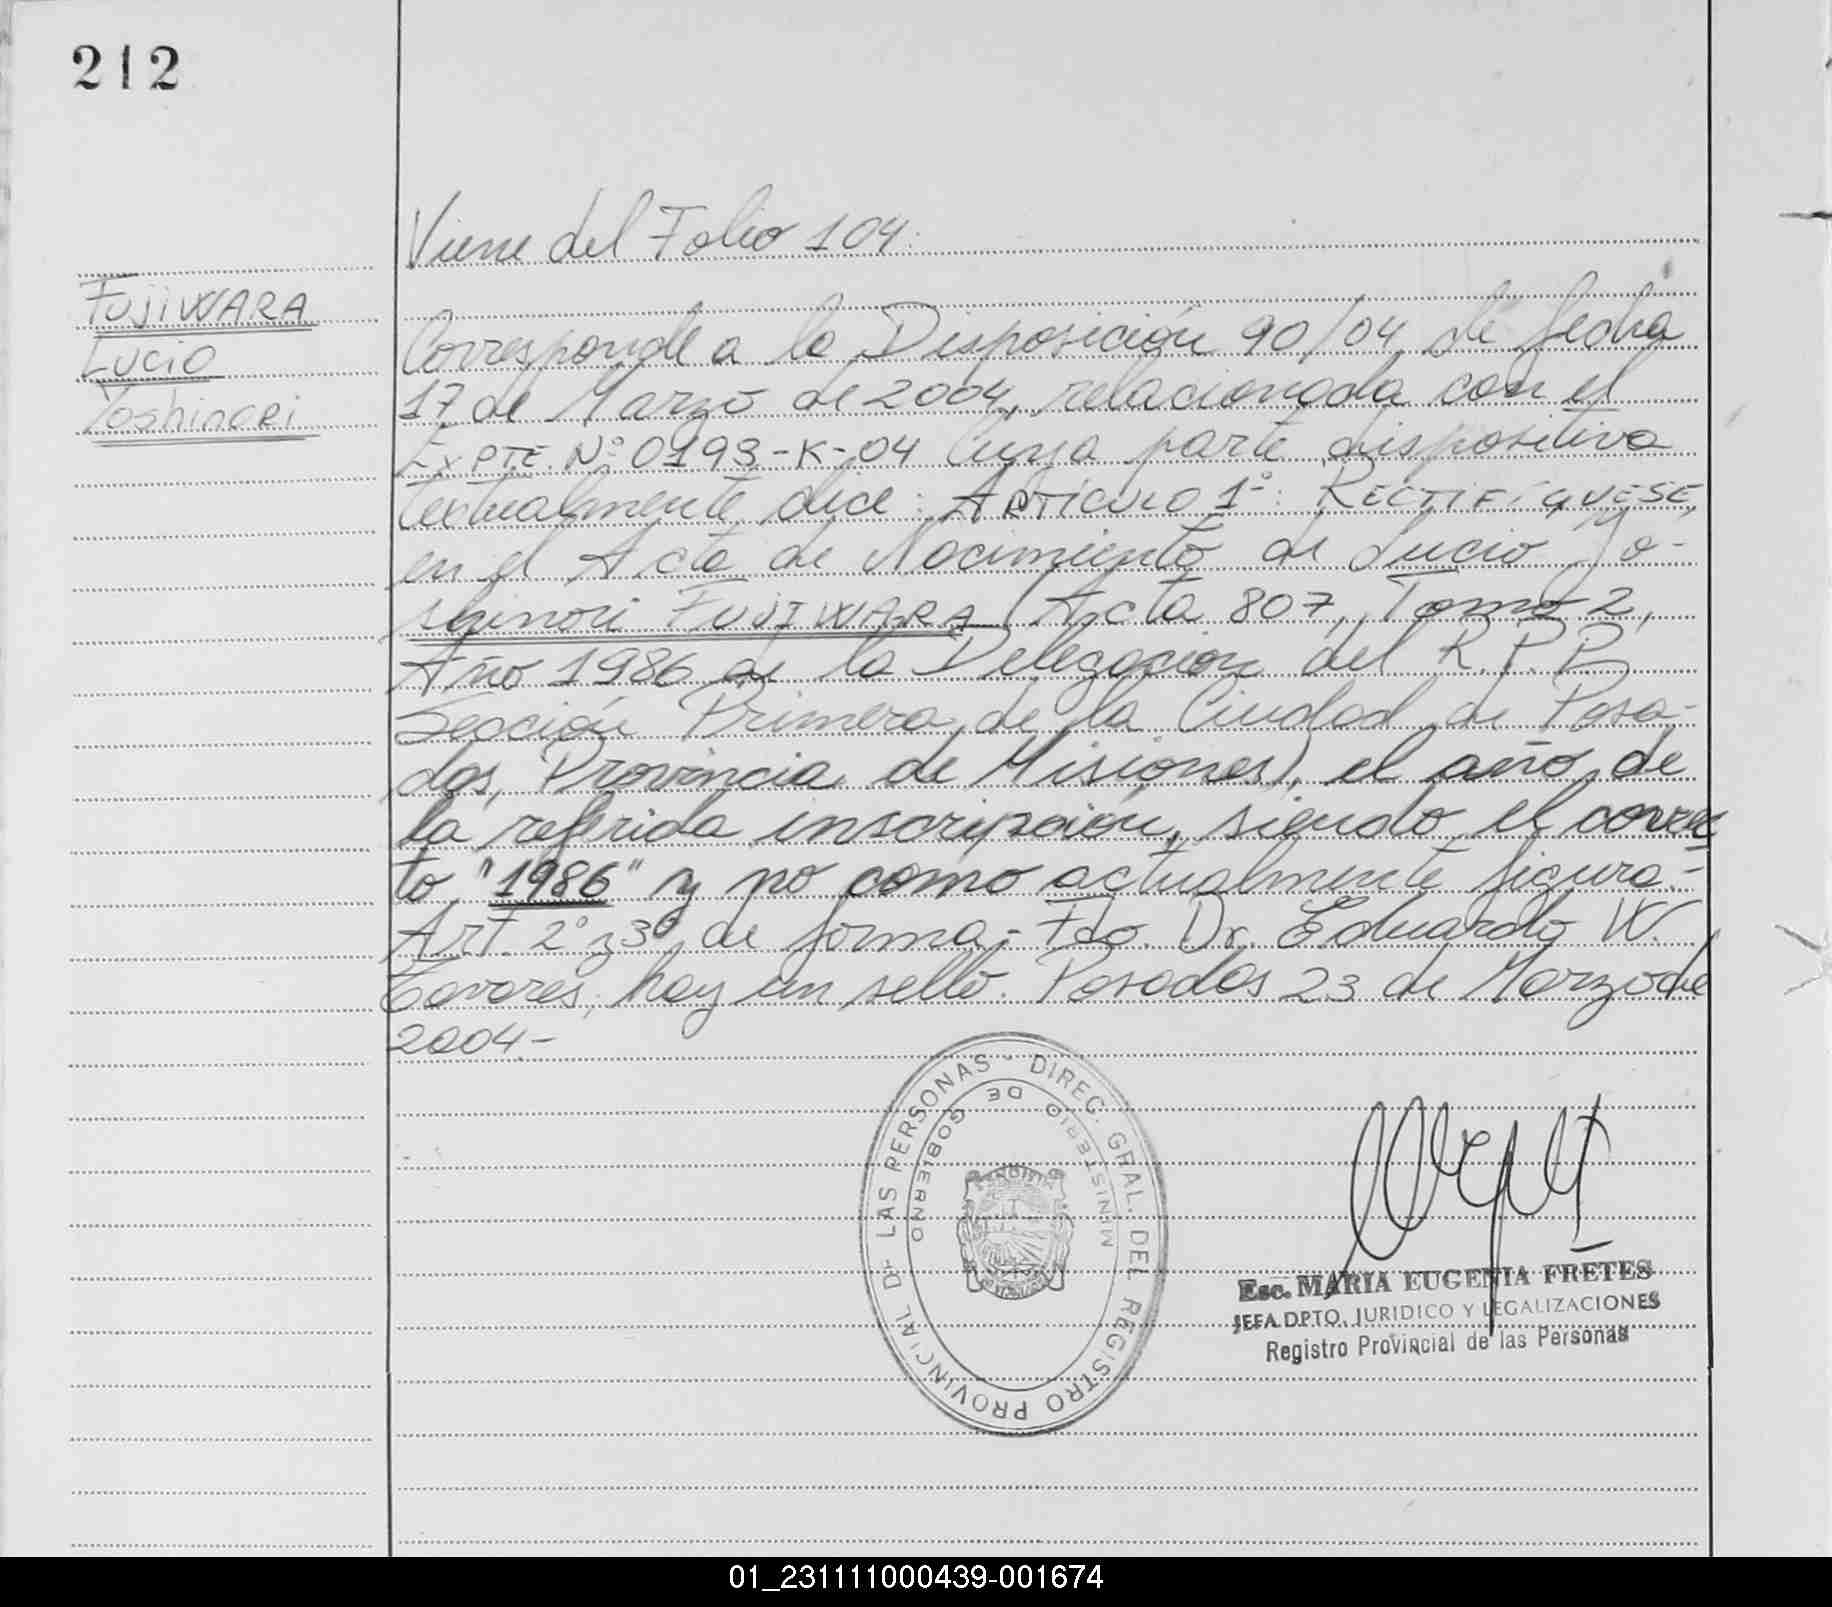 212
Viene del Folio 104.
FUJIWARA
Lucio
Yoshinori
Corresponde a la Disposición 90/04 de fecha
17 de Marzo de 2004, relacionada con el
EXPTE. Nº 0193-K-04 Cuya parte dispositiva
textualmente dice: ARTÍCULO 1º: RECTIFÍQUESE,
en el Acta de Nacimiento de Lucio Yo-
shinori FUJIWARA (Acta 807, Tomo 2,
Año 1986 de la Delegación del R.P.P.
Sección Primera de la Ciudad de Posa-
das, Provincia de Misiones), el año de
la referida inscripción, siendo el correc
to "1986" y no como actualmente figura.-
Art. 2º y 3º de forma.- Fdo. Dr. Eduardo W.
Tavares, hay un sello. Posadas 23 de Marzo de
2004.-
DIREC. GRAL. DEL REGISTRO PROVINCIAL DE LAS PERSONAS -
MINISTERIO DE GOBIERNO
MISIONES
Esc. MARIA EUGENIA FRETES
JEFA DPTO. JURIDICO Y LEGALIZACIONES
Registro Provincial de las Personas
01_231111000439-001674